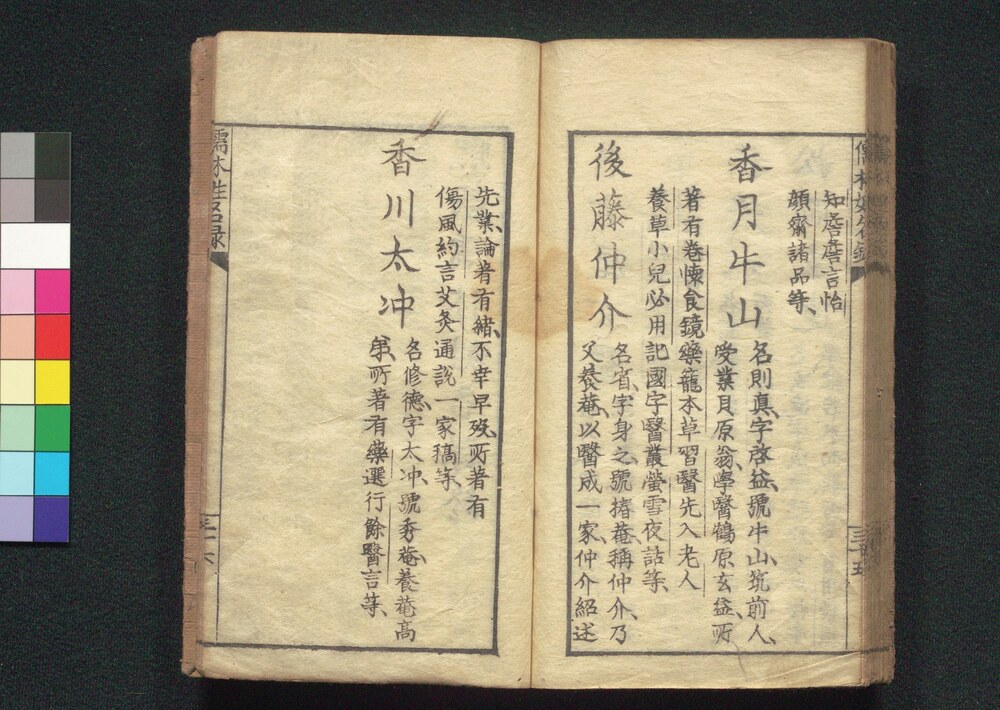 知磨磨言怡
顔齋諸品等、
香月牛山
名則真、字啓益、號牛山、筑前人、
受業貝原翁、學醫鶴原玄益、所
著有卷懷食鏡藥籠本草習醫先入老人
養草小兒必用記國字醫叢螢雪夜話等、
後藤仲介
名省、字身之號椿菴、稱仲介、乃
父養菴、以醫成一家、仲介紹述
先業、論著有緒、不幸早歿、所著有
傷風約言艾灸通說一家稿等、
香川太冲
名修德、字太冲、號秀菴、養菴高
弟、所著有藥選行餘醫言等、
儒林姓名録
三十五
儒林姓名録
三十六